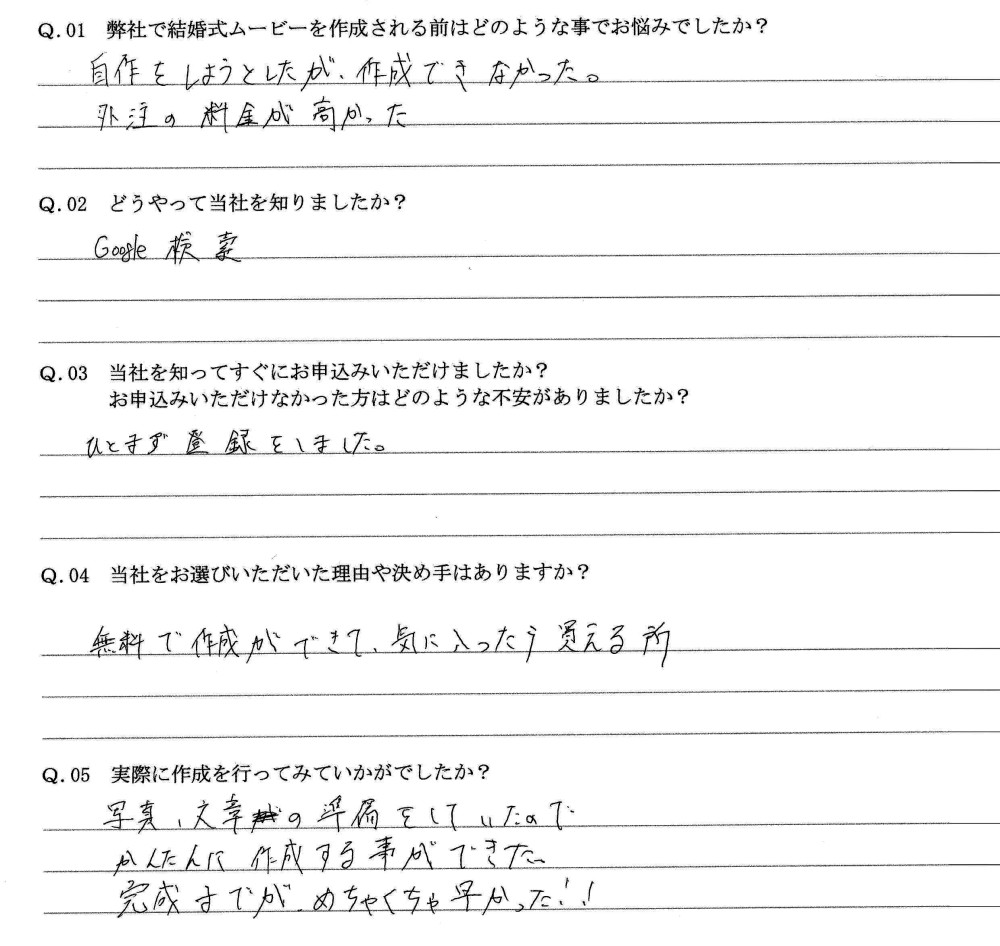 Q.01 弊社で結婚式ムービーを作成される前はどのような事でお悩みでしたか？
自作をしようとしたが、作成できなかった。
外注の料金が高かった
Q.02 どうやって当社を知りましたか？
Google 検索
Q.03 当社を知ってすぐにお申込みいただけましたか？
お申込みいただけなかった方はどのような不安がありましたか？
ひとまず登録をしました。
Q.04 当社をお選びいただいた理由や決め手はありますか？
無料で作成ができて、気に入ったら買える所
Q.05 実際に作成を行ってみていかがでしたか？
写真、文章の準備をしていたので
かんたんに作成する事ができた。
完成までが、めちゃくちゃ早かった!!